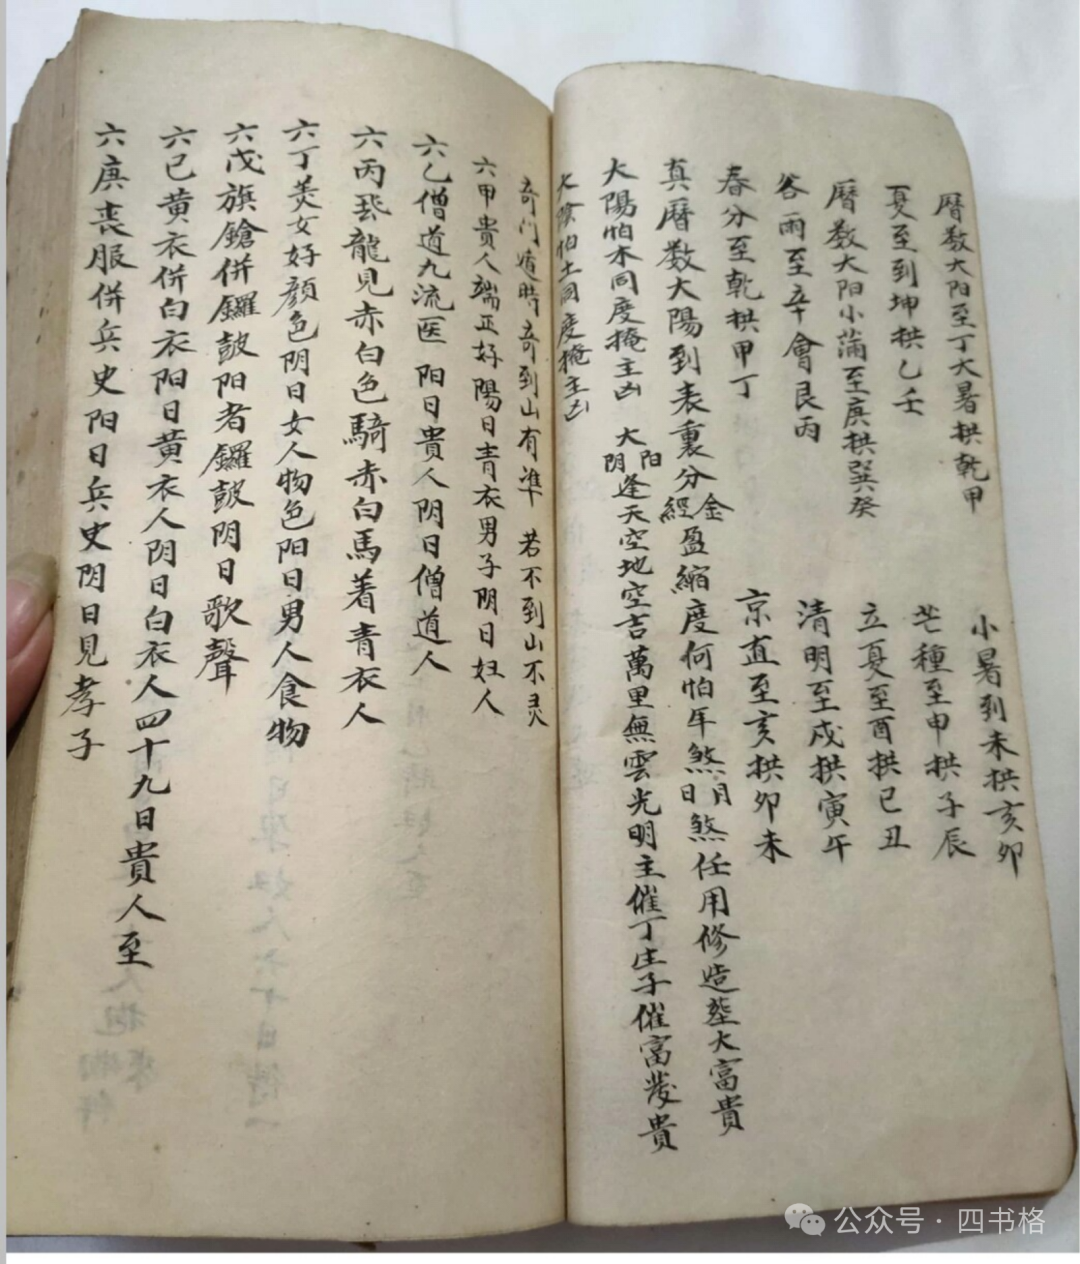 曆数大阳至丁大暑拱乾甲
小暑到未拱亥卯
夏至到坤拱乙壬
芒種至申拱子辰
曆数大阳小蒲至庚拱巽癸
立夏至酉拱巳丑
谷雨至辛會艮丙
清明至戍拱寅午
春分至乾拱甲丁
京直至亥拱卯未
真曆数大陽到表裏分金經盈縮度何怕年煞月日煞任用修造塟大富貴
太陽怕木同度掩主凶 太阳阴逢天空地空吉萬里無雲光明主催丁生子催富發貴
太陰怕土同度掩主凶
奇门遁時奇到山有凖 若不到山不灵
六甲貴人端正好陽日青衣男子阴日妇人
六乙僧道九流医 阳日貴人阴日僧道人
六丙龍見赤白色騎赤白馬着青衣人
六丁美女好顔色阴日女人物色阳日男人食物
六戊旗鎗併鑼皷阳者鑼皷阴日歌聲
六已黄衣併白衣阳日黄衣人阴日白衣人四十九日貴人至
六庚丧服併兵史阳日兵史阴日見孝子
公众号·四书格